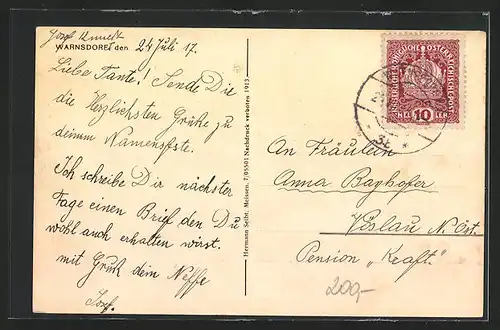 WARNSDORF, den 24 Juli 17.
Liebe Tante! Sende Die
die Herzlichsten Grüße zu
deinem Namensfste.
Ich schreibe Dir nächster
Tage einen Brief den Du
wohl auch erhalten wirst.
mit Gruß dein Neffe
Josf.
Hermann Seibt, Meissen. 7/05501 Nachdruck verboten 1913
KAISERLICHE KÖNIGLICHE ÖSTERREICHISCHE POST
HELLER 10
3b
An Fräulein
Anna Baghofer
Vöslau N. Öst.
Pension „Kraft."
200,-